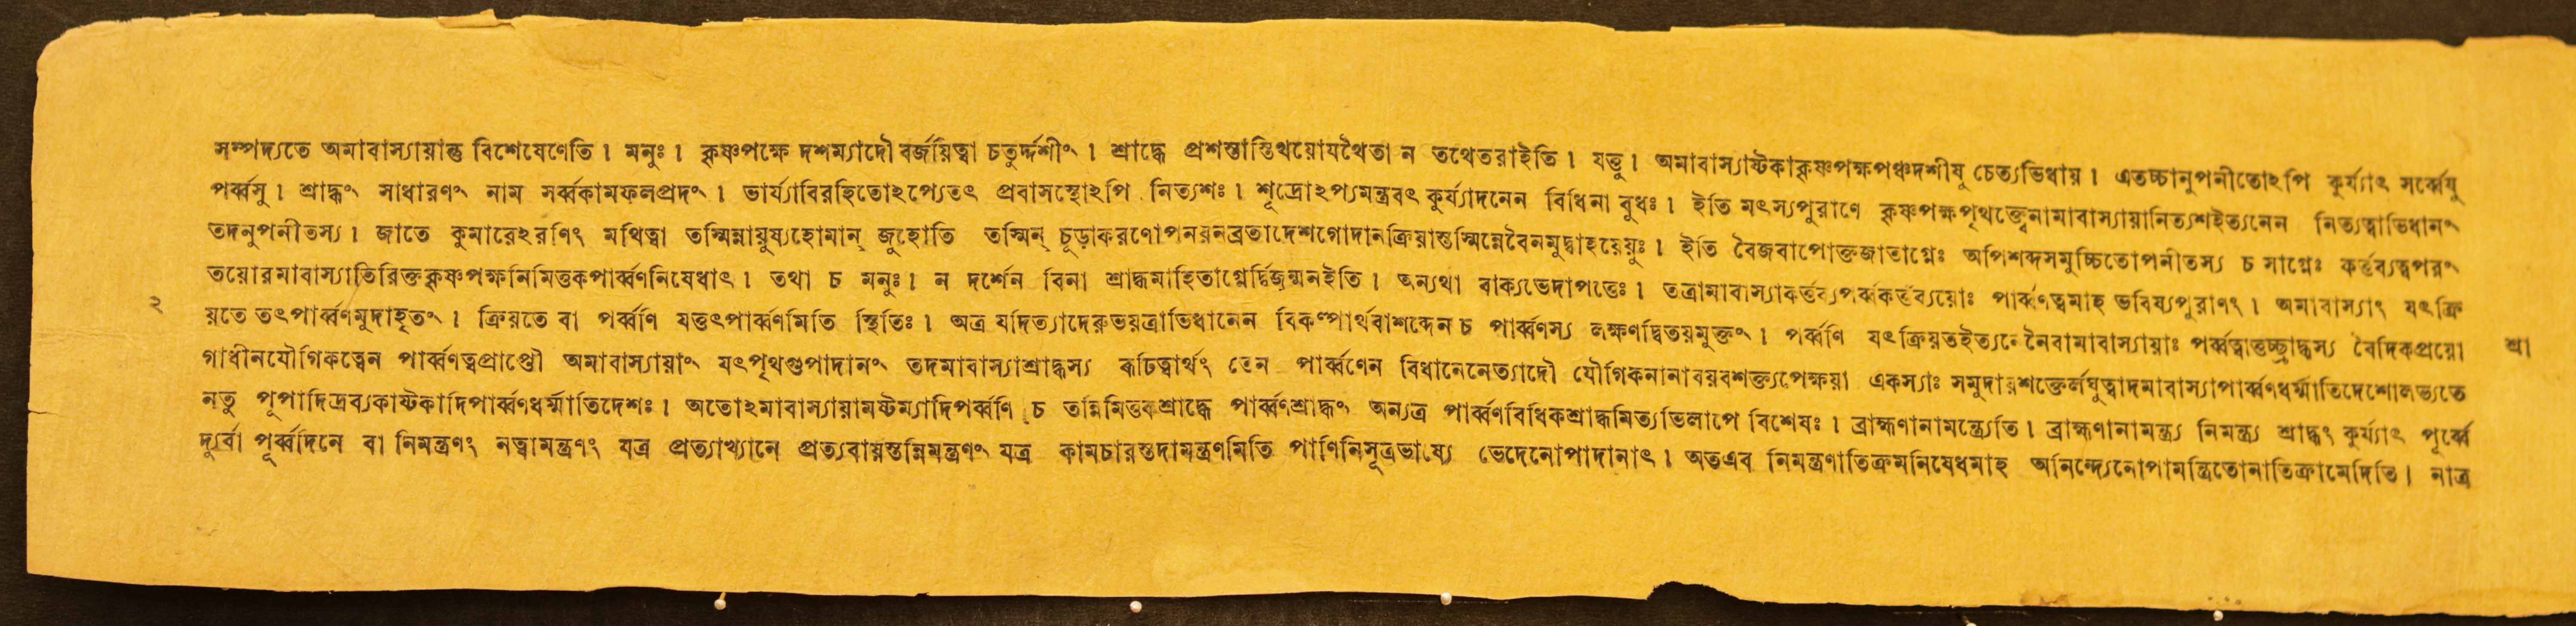 সম্পদ্যতে অমাবাস্যায়ান্তু বিশেষেণেতি। মনুঃ। কৃষ্ণপক্ষে দশম্যাদৌ বর্জয়িত্বা চতুর্দ্দশীং। শ্রাদ্ধে প্রশস্তাস্তিথয়োযথৈতা ন তথেতরাইতি। যত্তু। অমাবাস্যাষ্টকাকৃষ্ণপক্ষপঞ্চদশীষু চেত্যভিধায়। এতচ্চানুপনীতোঽপি কুর্য্যাৎ সর্ব্বেষু
পর্ব্বসু। শ্রাদ্ধং সাধারণং নাম সর্ব্বকামফলপ্রদং। ভার্য্যাবিরহিতোঽপ্যেতৎ প্রবাসস্থোঽপি নিত্যশঃ। শূদ্রোঽপ্যমন্ত্রবৎ কুর্য্যাদনেন বিধিনা বুধঃ। ইতি মৎস্যপুরাণে কৃষ্ণপক্ষপৃথক্ত্বেনামাবাস্যায়ানিত্যশইত্যনেন নিত্যত্বাভিধানং
তদনুপনীতস্য। জাতে কুমারেঽরণিং মথিত্বা তস্মিন্নায়ুষ্যহোমান্ জুহোতি তস্মিন্ চূড়াকরণোপনয়নব্রতাদেশগোদানক্রিয়াস্তস্মিন্নেবৈনমুদ্বাহয়েয়ুঃ। ইতি বৈজবাপোক্তজাতাগ্নেঃ অপিশব্দসমুচ্চিতোপনীতস্য চ সাগ্নেঃ কর্ত্তব্যত্বপরং
তয়োরমাবাস্যাতিরিক্তকৃষ্ণপক্ষনিমিত্তকপার্ব্বণনিষেধাৎ। তথা চ মনুঃ। ন দর্শেন বিনা শ্রাদ্ধমাহিতাগ্নের্দ্বিজন্মনইতি। অন্যথা বাক্যভেদাপত্তেঃ। তত্রামাবাস্যাকর্ত্তব্যপর্ব্বকর্ত্তব্যয়োঃ পার্ব্বণত্বমাহ ভবিষ্যপুরাণং। অমাবাস্যাং যৎক্রি
২ য়তে তৎপার্ব্বণমুদাহৃতং। ক্রিয়তে বা পর্ব্বণি যত্তৎপার্ব্বণমিতি স্থিতিঃ। অত্র যদিত্যাদেরুভয়ত্রাভিধানেন বিকল্পার্থবাশব্দেন চ পার্ব্বণস্য লক্ষণদ্বিতয়মুক্তং। পর্ব্বণি যৎক্রিয়তইত্যনেনৈবামাবাস্যায়াঃ পর্ব্বত্বাত্তচ্ছ্রাদ্ধস্য বৈদিকপ্রয়ো শ্রা
গাধীনযৌগিকত্বেন পার্ব্বণত্বপ্রাপ্তৌ অমাবাস্যায়াং যৎপৃথগুপাদানং তদমাবাস্যাশ্রাদ্ধস্য রূঢিত্বার্থং তেন পার্ব্বণেন বিধানেনেত্যাদৌ যৌগিকনানাবয়বশক্ত্যপেক্ষয়া একস্যাঃ সমুদায়শক্তের্লঘুত্বাদমাবাস্যাপার্ব্বণধর্ম্মাতিদেশোলভ্যতে
নতু পূপাদিদ্রব্যকাষ্টকাদিপার্ব্বণধর্ম্মাতিদেশঃ। অতোঽমাবাস্যায়ামষ্টম্যাদিপর্ব্বণি চ তন্নিমিত্তকশ্রাদ্ধে পার্ব্বণশ্রাদ্ধং অন্যত্র পার্ব্বণবিধিকশ্রাদ্ধমিত্যভিলাপে বিশেষঃ। ব্রাহ্মণানামন্ত্র্যেতি। ব্রাহ্মণানামন্ত্র্য নিমন্ত্র্য শ্রাদ্ধং কুর্য্যাৎ পূর্ব্বে
দ্যুর্বা পূর্ব্বদিনে বা নিমন্ত্রণং নত্বামন্ত্রণং যত্র প্রত্যাখ্যানে প্রত্যবায়স্তন্নিমন্ত্রণং যত্র কামচারস্তদামন্ত্রণমিতি পাণিনিসূত্রভাষ্যে ভেদেনোপাদানাৎ। অতএব নিমন্ত্রণাতিক্রমনিষেধমাহ অনিন্দ্যেনোপামন্ত্রিতোনাতিক্রামেদিতি। নাত্র